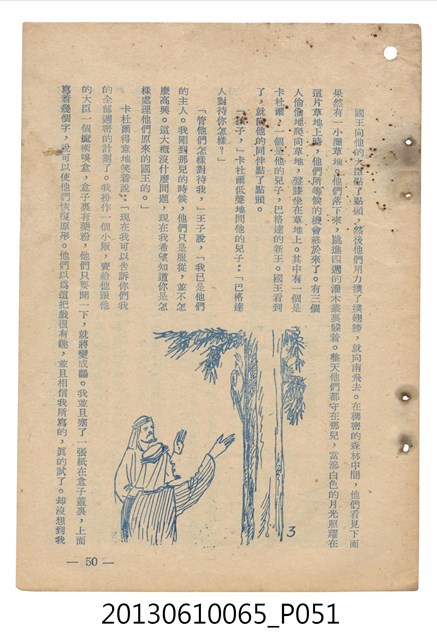 國王向他的大臣點了點頭，然後他們用力撲了撲翅膀，就向南飛去。在稠密的森林中間，他們看見下面
果然有一小塊草地。他們落下來，跳進四週的灌木叢裏躲着。整天他們都守在那兒，當銀白色的月光照耀在
這片草地上時，他們所等候的機會終於來了。有三個
人偷偷地爬向草地，盤膝坐在草地上。其中有一個是
卡杜爾，一個是他的兒子，巴格達的新王。國王看到
了，就向他的同伴點了點頭。
「孩子，」卡杜爾低聲地問他的兒子：「巴格達
人對待你怎樣？」
「管他們怎樣對待我，」王子說，「我已是他們
的主人。我剛到那兒的時候，他們只是服從，並不怎
麼高興。這大概沒什麼問題，現在我希望知道你是怎
樣處理他們原來的國王的。」
卡杜爾得意地笑着說：「現在我可以告訴你們我
的全部週密的計劃了。我扮作一個小販，賣給他跟他
的大臣一個魔術嗅盒，盒子裏有藥粉，他們只要聞一下，就將變成鸛。我並且塞了一張紙在盒子蓋裏，上面
寫着幾個字，說可以使他們恢復原形。他們以爲這把戲很有趣，並且相信我所寫的，眞的試了。却沒想到我
3
— 50 —
20130610065_P051